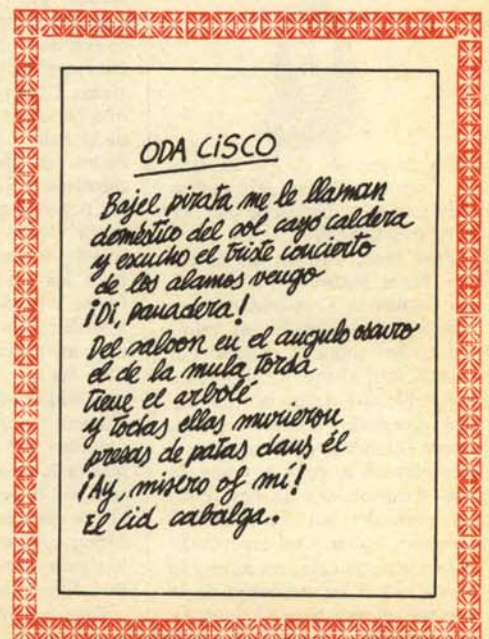 ODA CISCO
Bajel pirata me le llaman
doméstico del sol cayó caldera
y excucho el triste concierto
de los alamos vengo
¡Di, panadera!
Del saloon en el angulo oscuro
el de la mula torda
tiene el arbolé
y todas ellas murieron
presas de patas dans él
¡Ay, misero of mí!
El Cid cabalga.